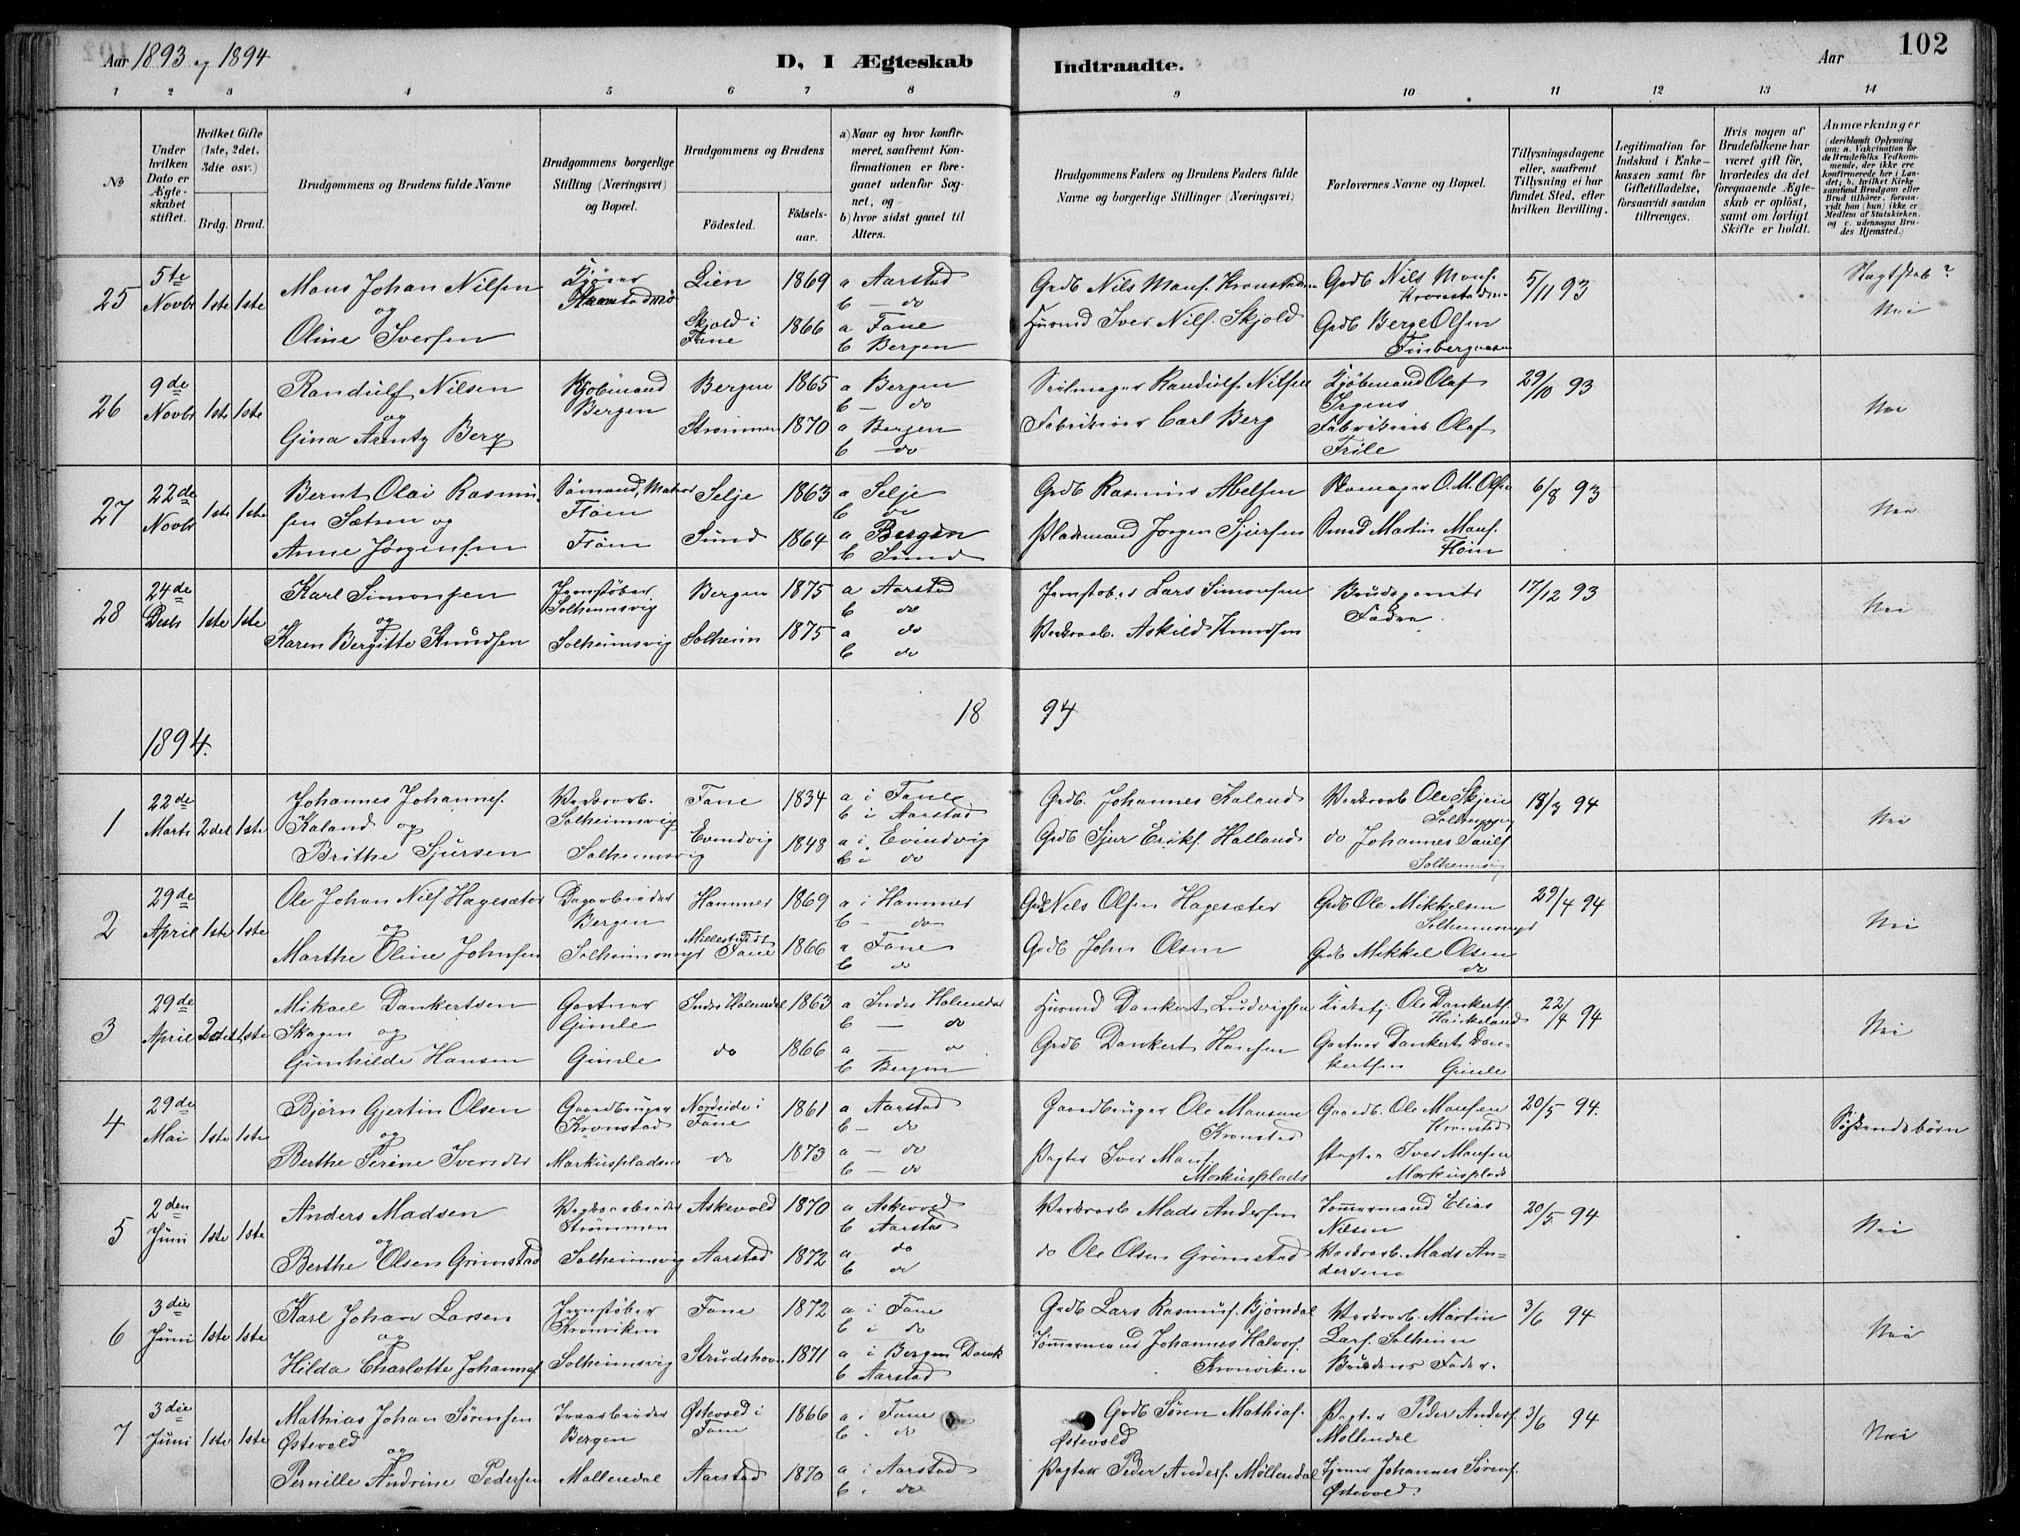 Aar 1893 og 1894
D, I Ægteskab
Indtraadte.
Aar
102
1 2 3 4 5 6 7 8 9 10 11 12 13 14
No
Under hvilken Dato er Ægteskabet stiftet.
Hvilket Gifte (1ste, 2det, 3die osv.)
Brdg. Brud.
Brudgommens og Brudens fulde Navne
Brudgommens borgerlige Stilling (Næringsvei) og Bopæl.
Brudgommens og Brudens
Födested.
Födselsaar.
a) Naar og hvor konfirmeret, saafremt Konfirmationen er foregaaet udenfor Sognet, og
b) hvor sidst gaaet til Alters.
Brudgommens Faders og Brudens Faders fulde Navne og borgerlige Stillinger (Næringsvei)
Forlovernes Navne og Bopæl.
Tillysningsdagene eller, saafremt Tillysning ei har fundet Sted, efter hvilken Bevilling.
Legitimation for Indskud i Enkekassen samt for Giftetilladelse, forsaavidt saadan tiltrænges.
Hvis nogen af Brudefolkene har været gift för, hvorledes da det foregaaende Ægteskab er oplöst, samt om lovligt Skifte er holdt.
Anmærkninger (deriblandt Oplysning om: a. Vakcination for de Brudefolks Vedkommende, der ikke ere konfirmerede her i Landet; b. hvilket Kirkesamfund Brudgom eller Brud tilhörer, forsaavidt han (hun) ikke er Medlem af Statskirken, og c. udensogns Brudes Hjemsted.)
25 5te Novbr 1ste 1ste
Mons Johan Nilsen og
Oline Iversen
Lien 1869 a Aarstad
b — do
Skjold i Fane 1866 a Fane
b Bergen
Grdb Nils Mons. Kronstad
Husmd Iver Nils. Skjold
Grdb Nils Mons.
Grdb Berge Olsen
5/11 93
Slagtskab?
Nei
26 9de Novbr 1ste 1ste
Randulf Nilsen
og
Gina Arentz Berg
Kjöbmand
Bergen
Bergen 1865 a Bergen
b — do
Strömmen 1870 a Bergen
b — do
Randulf Nilsen
Fabrikeier Carl Berg
Kjöbmand Olaf
Irgens
Fabrikeier Olaf
Friele
29/10 93
Nei
27 22de Novbr 1ste 1ste
Bernt Olai Rasmussen Sætren og
Anne Jörgensen
Sömand, Matros
Flöien
Selje 1863 a Selje
b do
Sund 1864 a Bergen
b Sund
Grdb Rasmus Abelsen
Pladsmand Jörgen Sjursen
Skomager O. M. Olsen
Martin Mons.
Flöien
6/8 93
Nei
28 24de Decbr 1ste 1ste
Karl Simonsen
og
Karen Bergitte Knudsen
Jernstöber
Solheimsvig
Solheimsvig
Bergen 1875 a Aarstad
b do
Solheim 1875 a do
b do
Jernstöber Lars Simonsen
Verksarb. Askild Knudsen
Brudeparrets
Fædre.
17/12 93
Nei
1894.
18 94
1 22de Marts 2det 1ste
Johannes Johannes.
Kaland og
Brithe Sjursen
Verksarb.
Solheimsvig
Solheimsvig
Fane 1834 a i Fane
b i Aarstad
Evindvig 1848 a i Evindvig
b i do
Grdb. Johannes Kaland
Grdb Sjur Eriks. Halland
Verksarb Ole Skjeie
do Johannes Pauls.
Solheimsvig
18/3 94
Nei
2 29de April 1ste 1ste
Ole Johan Nils. Hagesæter
og
Marthe Oline Johnsen
Bergen
Solheimsvig
Hammer 1869 a i Hammer
b — do
Fane 1866 a Fane
b do
Grdb Nils Olsen Hagesæter
Grdb John Olsen
Grdb Ole Mikkelsen
Solheimsvig
Grdb Mikkel Olsen
do
29/4 94
Nei
3 29de April 2det 1ste
Mikael Dankertsen
Skagen og
Gunhilde Hansen
Gartner
Gimle
Gimle
Indre Holmedal 1863 a Indre Holmedal
b — do
do 1866 a — do
b Bergen
Husmd Dankert Ludvigsen
Grdb Dankert Hansen
Ole Dankerts.
Haukeland
Gartner Dankert Dankertsen Gimle
22/4 94
Nei
4 29de Mai 1ste 1ste
Björn Gjertin Olsen
og
Berthe Serine Iversdtr
Gaardbruger
Kronstad
Markuspladsen
Nordeide i Fane 1861 a Aarstad
b — do
do 1873 a — do
b — do
Gaardbruger Ole Monsen
Kronstad
Pagter Iver Mons.
Markusplads
Gaardb. Ole Monsen
Kronstad
Pagter Iver Monsen
Markusplads
20/5 94.
Söskendebörn
5 2den Juni 1ste 1ste
Anders Madsen
og
Berthe Olsen Grimstad
Verksarbeider
Strömmen
Solheimsvig
Askevold 1870 a Askevold
b Aarstad
Aarstad 1872 a do
b do
Verksarb Mads Andersen
do Ole Olsen Grimstad
Tömmermand Elias
Nilsen
Verksarb. Mads Andersen
20/5 94
Nei
6 3die Juni 1ste 1ste
Karl Johan Larsen
og
Hilda Charlotte Johannes.
Jernstöber
Kronviken
Solheimsvig
Fane 1872 a i Fane
b i do
Strudshavn 1871 a i Bergen Domk
b Aarstad
Grdb Lars Rasmus. Björndal
Tömmermand Johannes Halvors.
Kronviken
Verksarb. Martin
Lars. Solheim
Brudens Fader.
3/6 94
Nei
7 3die Juni 1ste 1ste
Mathias Johan Sörensen
Östevold og
Pernille Andrine Pedersen
Bergen
Möllendal
Östevold i Fane 1866 a i Fane
b i do
Aarstad 1870 a i Aarstad
b i do
Grdb Sören Mathias.
Östevold
Pagter Peder Anders. Möllendal
Pagter Peder Anders.
Möllendal
Johannes Sörens.
Östevold.
3/6 94
Nei